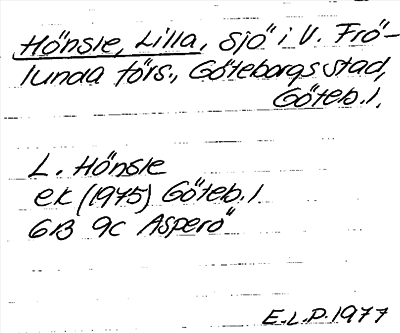 Hönsle, Lilla, Sjö i V. Frö-
lunda förs., Göteborgs stad,
Göteb. l.
L. Hönsle
ek (1975) Göteb. l
6B 9c Asperö
E.L.P. 1977